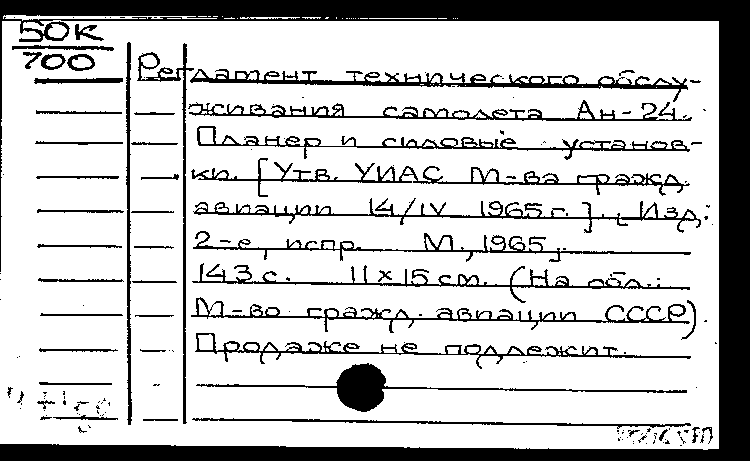 50К
700
Регламент технического обслу-
живания самолета Ан-24.
Планер и силовые установ-
ки. [Утв. УИАС М-ва гражд.
авиации 14/IV 1965 г.]. [Изд.:
2-е, испр. М., 1965].
143 с. 11х15 см. (На обл.:
М-во гражд. авиации СССР).
Продаже не подлежит.